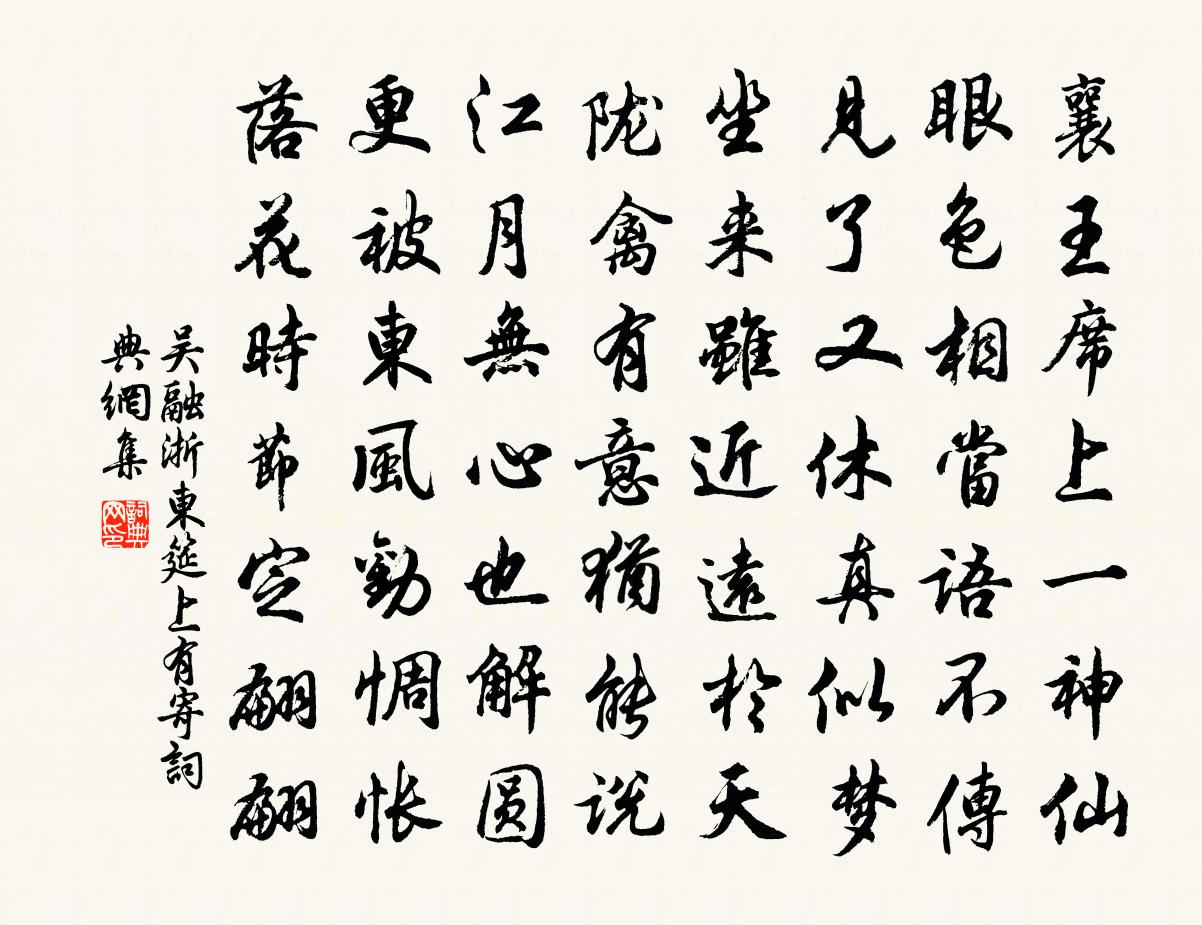 襄王席上一神仙
眼色相當語不傳
見了又休真似梦
坐来雖近遠於天
陇禽有意猶能説
江月無心也解圆
更被東風勸惆怅
落花時節定翩翩
吴融浙東筵上有寄詞
典網集
詞典网印